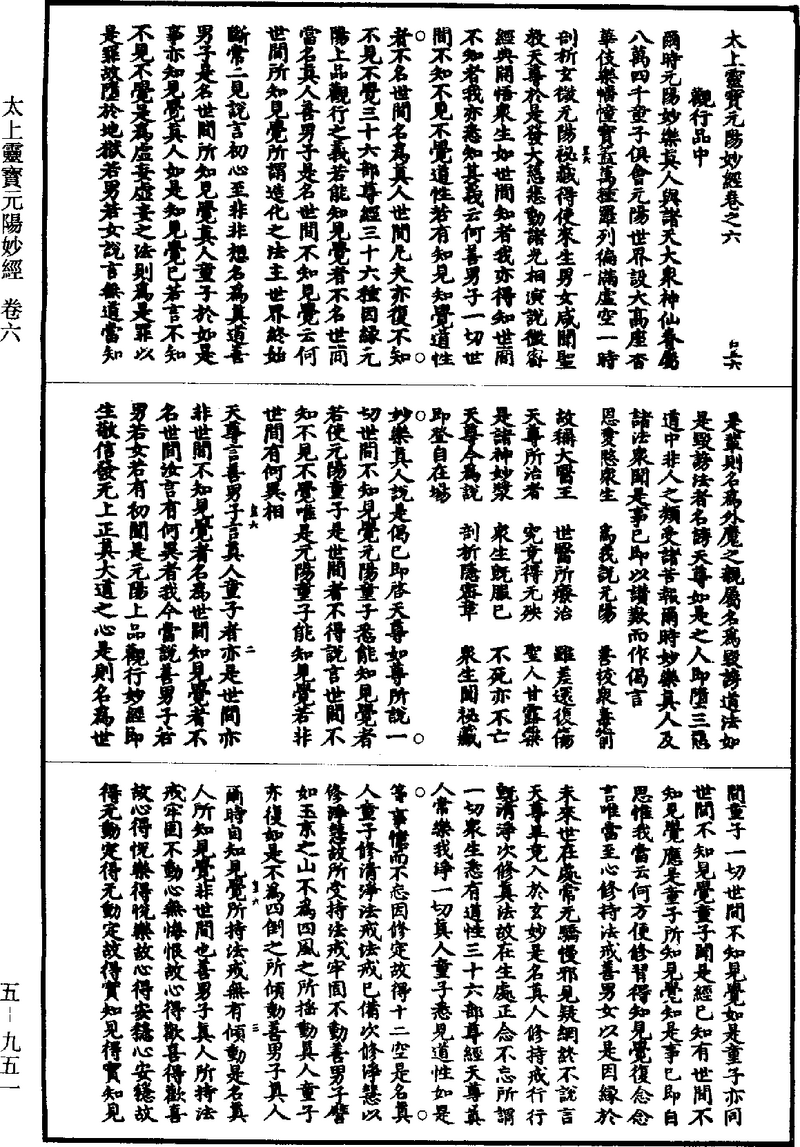 太上靈寶元陽妙經卷之六
觀行品中
爾時元陽妙樂真人與諸天大衆神仙眷屬
八萬四千童子俱會元陽世界設大高座香
華伎樂幡幢寶蓋萬種羅列徧滿虛空一時
剖析玄微元陽祕藏得使來生男女咸聞聖
教天尊於是發大慈悲動諸光相演說微密
經典開悟衆生如世間知者我亦得知世間
不知者我亦悉知其義云何善男子一切世
間不知不見不覺道性若有知見知覺道性
者不名世間名爲真人世間凡夫亦復不知
不見不覺三十六部尊經三十六種因緣元
陽上品觀行之義若能知見覺者不名世間
當名真人善男子是名世間不知見覺云何
世間所知見覺所謂造化之法主世界終始
斷常二見說言初心至非非想名爲真道善
男子是名世間所知見覺真人童子於如是
事亦知見覺真人如是知見覺已若言不知
不見不覺是爲虛妄虛妄之法則爲是罪以
是罪故墮於地獄若男若女說言無道當知
是輩則名爲外魔之親屬名爲毀謗道法如
是毀謗法者名謗天尊如是之人即墮三惡
道中非人之類受諸苦報爾時妙樂真人及
諸法衆聞是事已即以讚歎而作偈言
恩愛愍衆生 爲我説元陽 善拔衆毒箭
故稱大醫王 世醫所療治 雖差還復傷
天尊所治者 究竟得无殃 聖人甘露藥
是諸神妙漿 衆生既服已 不死亦不亡
天尊今爲說 剖析隱密章 衆生聞祕藏
即登自在場
妙樂真人說是偈已即啓天尊如尊所說一
切世間不知見覺元陽童子悉能知見覺者
若使元陽童子是世間者不得說言世間不
知不見不覺唯是元陽童子能知見覺若非
世間有何異相
天尊言善男子言真人童子者亦是世間亦
非世間不知見覺者名爲世間知見覺者不
名世間汝言有何異者我今當說善男子若
男若女若有初聞是元陽上品觀行妙經即
生敬信發无上正真大道之心是則名爲世
間童子一切世間不知見覺如是童子亦同
世間不知見覺童子聞是經已知有世間不
知見覺應是童子所知見覺知是事已即自
思惟我當云何方便修習得知見覺復念念
言唯當至心修持法戒善男女以是因緣於
未來世在處常无驕慢邪見疑網終不說言
天尊畢竟入於玄妙是名真人修持戒行行
旣清淨次修真法故在生處正念不忘所謂
一切衆生悉有道性三十六部尊經天尊真
人常樂我淨一切真人童子悉見道性如是
等事憶而不忘因修定故得十二空是名真
人童子修清淨法戒法戒已備次修淨慧以
修淨慧故所受持法戒牢固不動善男子譬
如玉京之山不爲四風之所搖動真人童子
亦復如是不爲四倒之所傾動善男子真人
爾時自知見覺所持法戒無有傾動是名真
人所知見覺非世間也善男子真人所持法
戒牢固不動心無悔恨故心得歡喜得歡喜
故心得悅樂得悅樂故心得安隱心安隱故
得无動定得无動定故得實知見得實知見
太上靈寶元陽妙經 卷六
五-九五一